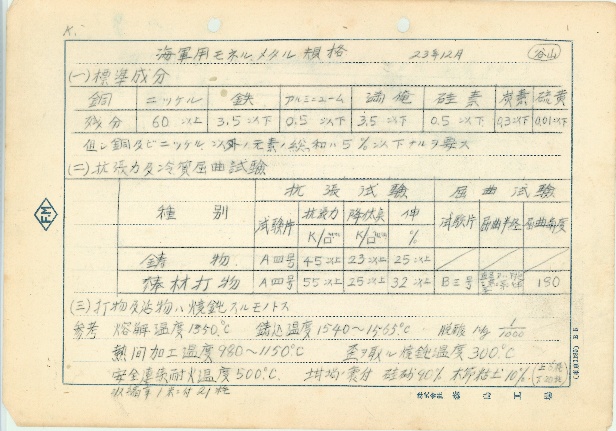 K.
海軍用モネルメタル規格 23年12月 谷山
(一) 標準成分
銅 ニッケル 鉄 アルミニューム 満俺 硅素 炭素 硫黄
残分 60以上 3.5以下 0.5以下 3.5以下 0.5以下 0.3以下 0.01以下
但シ銅及ビニッケル以外ノ元素ノ総和ハ5%以下ナルヲ要ス
(二) 抗張力及冷質屈曲試験
種別 抗張試験 屈曲試験
試験片 抗張力 降伏点 伸 試験片 屈曲半径 屈曲角度
K/□mm K/□mm %
鋳物 A四号 45以上 23以上 25以上
棒材打物 A四号 55以上 25以上 32以上 B三号 180
(三) 打物及鋳物ハ焼鈍スルモノトス
参考 熔解温度1350°C 鋳込温度1540～1565°C 脱酸 Mg 1/1000
熱間加工温度980～1150°C 歪ヲ取ル焼鈍温度300°C
安全連続耐火温度500°C. 坩堝裏付 硅砂90% 木節粘土10%.
FM
株式会社
B5